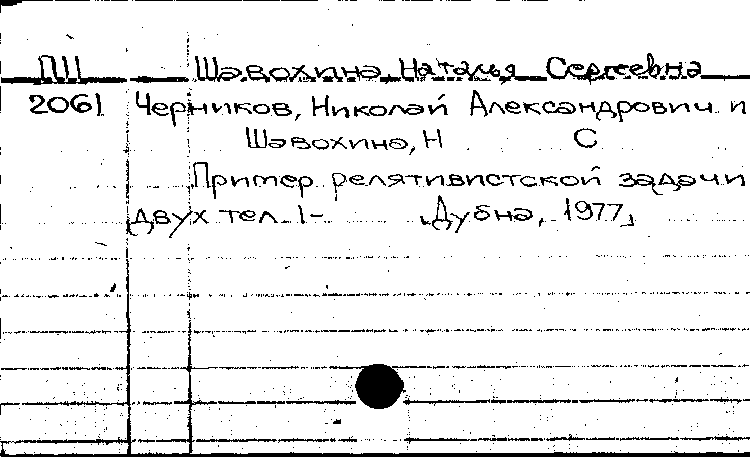 П11 Шавохина, Наталья Сергеевна
2061 Черников, Николай Александрович и
Шавохина, Н С
Пример релятивистской задачи
двух тел. 1- Дубна, 1977